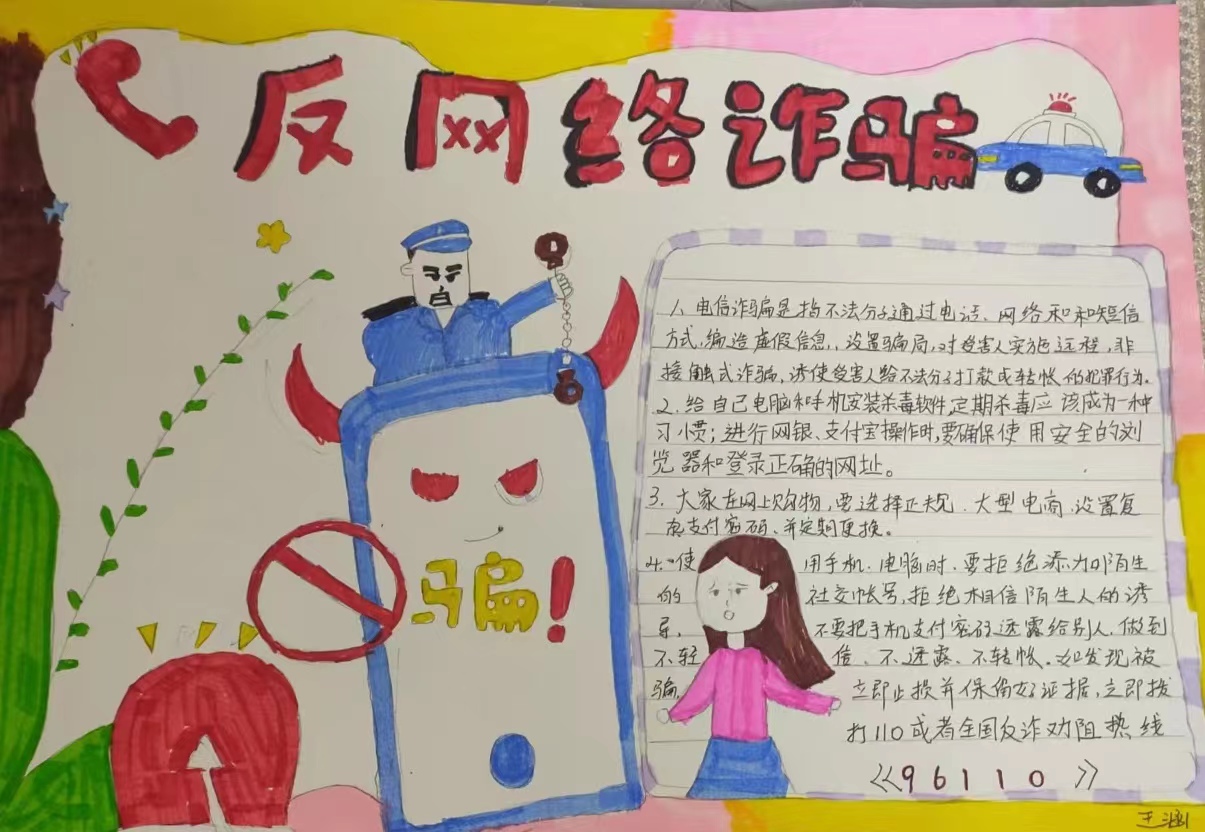 反网络诈骗
1、电信诈骗是指不法分子通过电话、网络和和短信
方式,编造虚假信息,设置骗局,对受害人实施远程,非
接触式诈骗,诱使受害人给不法分子打款或转帐的犯罪行为。
2、给自己电脑和手机安装杀毒软件,定期杀毒应该成为一种
习惯;进行网银、支付宝操作时,要确保使用安全的浏
览器和登录正确的网址。
3、大家在网上购物,要选择正规、大型电商、设置复
杂支付密码、并定期更换。
4、使用手机、电脑时、要拒绝添加陌生
的社交帐号,拒绝相信陌生人的诱
导,不要把手机支付密码透露给别人,做到
不轻信、不透露、不转帐。如发现被
骗,立即止损并保留好证据,立即拨
打110或者全国反诈劝阻热线
《96110》
骗!
王涵